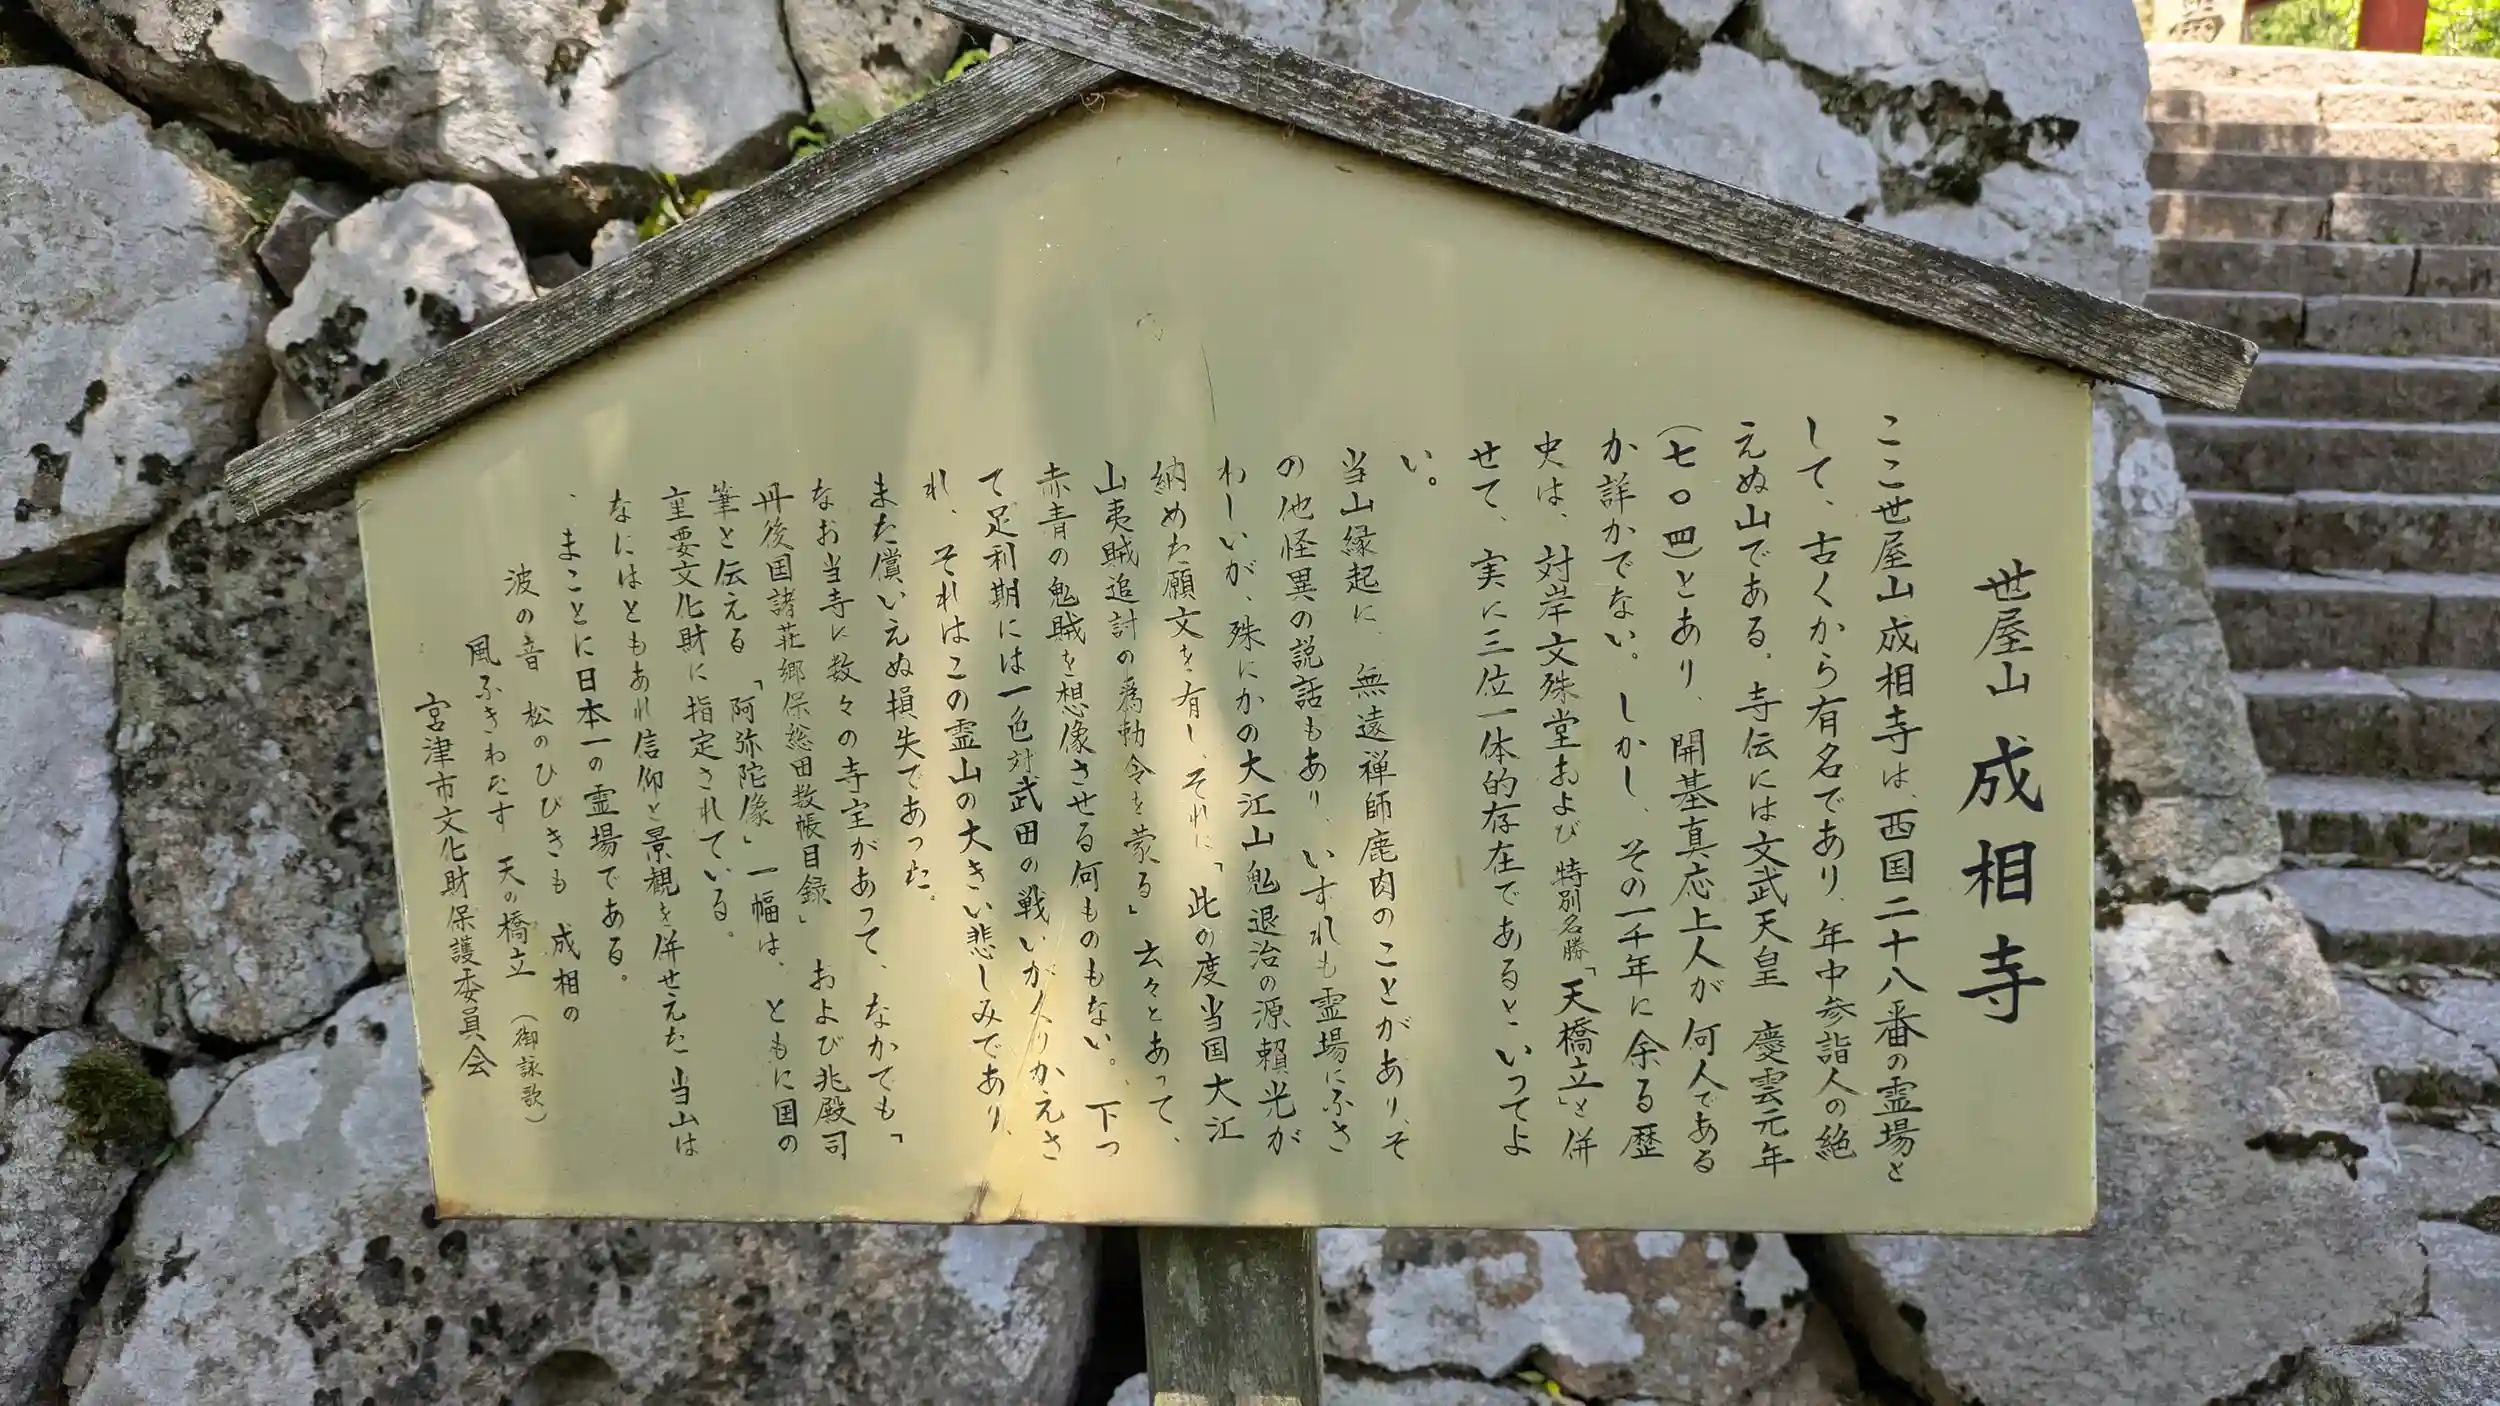 世屋山 成相寺
ここ世屋山成相寺は、西国二十八番の霊場と
して、古くから有名であり、年中参詣人の絶
えぬ山である。寺伝には文武天皇 慶雲元年
(七〇四)とあり、開基真応上人が何人である
か詳かでない。しかし、その一千年に余る歴
史は、対岸文殊堂および特別名勝「天橋立」と併
せて、実に三位一体的存在であるといってよ
い。
当山縁起に、無遠禅師鹿肉のことがあり、そ
の他怪異の説話もあり、いずれも霊場にふさ
わしいが、殊にかの大江山鬼退治の源頼光が
納めた願文を有し、それに「此の度当国大江
山夷賊追討の為勅令を蒙る」云々とあって、
赤青の鬼賊を想像させる何ものもない。下っ
て足利期には一色対武田の戦いがくりかえさ
れ、それはこの霊山の大きい悲しみであり、
また償いえぬ損失であった。
なお当寺に数々の寺宝があって、なかでも「
丹後国諸荘郷保総田数帳目録」および兆殿司
筆と伝える「阿弥陀像」一幅は、ともに国の
重要文化財に指定されている。
なにはともあれ信仰と景観を併せえた当山は
、まことに日本一の霊場である。
波の音 松のひびきも 成相の
風ふきわたす 天の橋立 (御詠歌)
宮津市文化財保護委員会